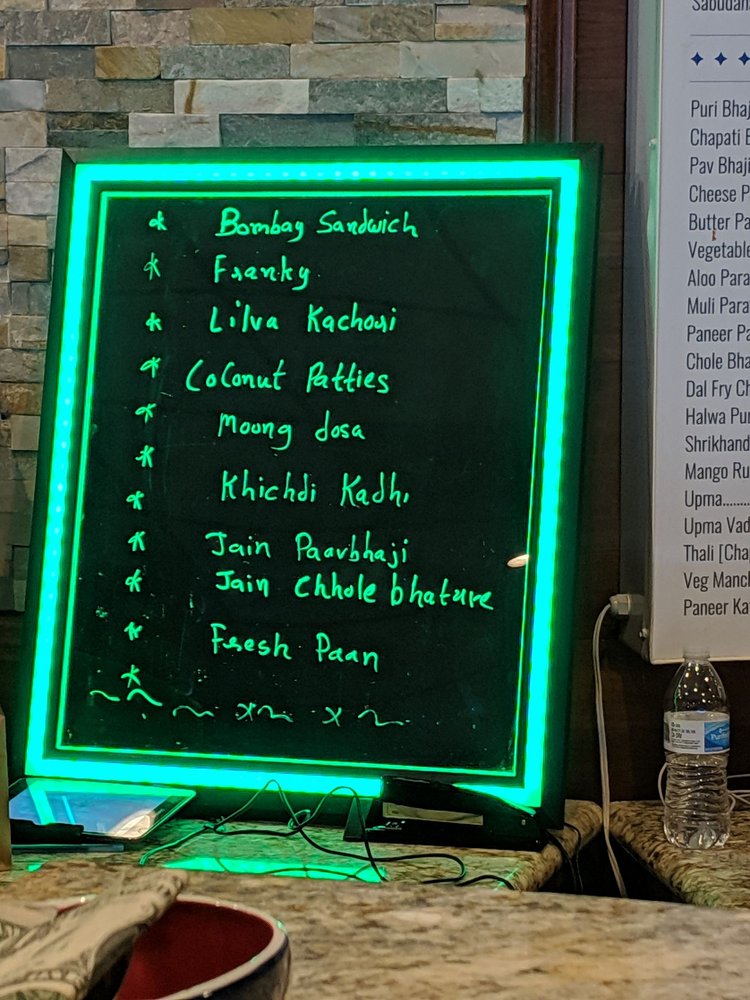 * Bombay Sandwich
* Franky
* Lilva Kachori
* Coconut Patties
* Moong dosa
*
* Khichdi Kadhi
* Jain Paavbhaji
* Jain Chholebhature
* Fresh Paan
*
Sabudan
Puri Bhaj
Chapati B
Pav Bhaji
Cheese P
Butter Pa
Vegetable
Aloo Para
Muli Para
Paneer Pa
Chole Bha
Dal Fry Ch
Halwa Pur
Shrikhand
Mango Ru
Upma........
Upma Vad
Thali [Chap
Veg Manch
Paneer Ka